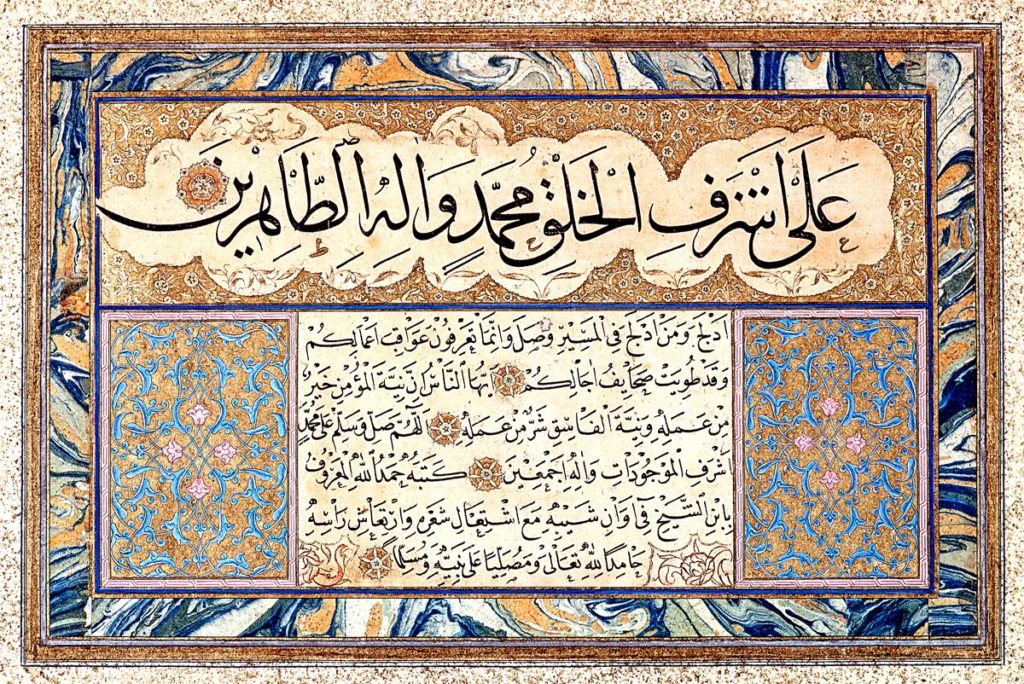 عَلَى اَشْرَفِ الْخَلْقِ مُحَمَّدٍ وَاٰلِهِ الطَّاهِرِينَ
ادلج ومن ادلج في المسير وصل وانما تعرفون عواقب اعمالكم
وقد طويت صحايف اجالكم ايها الناس ان نية المؤمن خير
من عمله ونية الفاسق شر من عمله اللهم صل وسلم على محمد
اشرف الموجودات واله اجمعين كتبه حمد الله المعروف
بابن الشيخ في اوان شيبه مع اشتعال شعره وارتعاش راسه
حامدا لله تعالى ومصليا على نبيه ومسلما